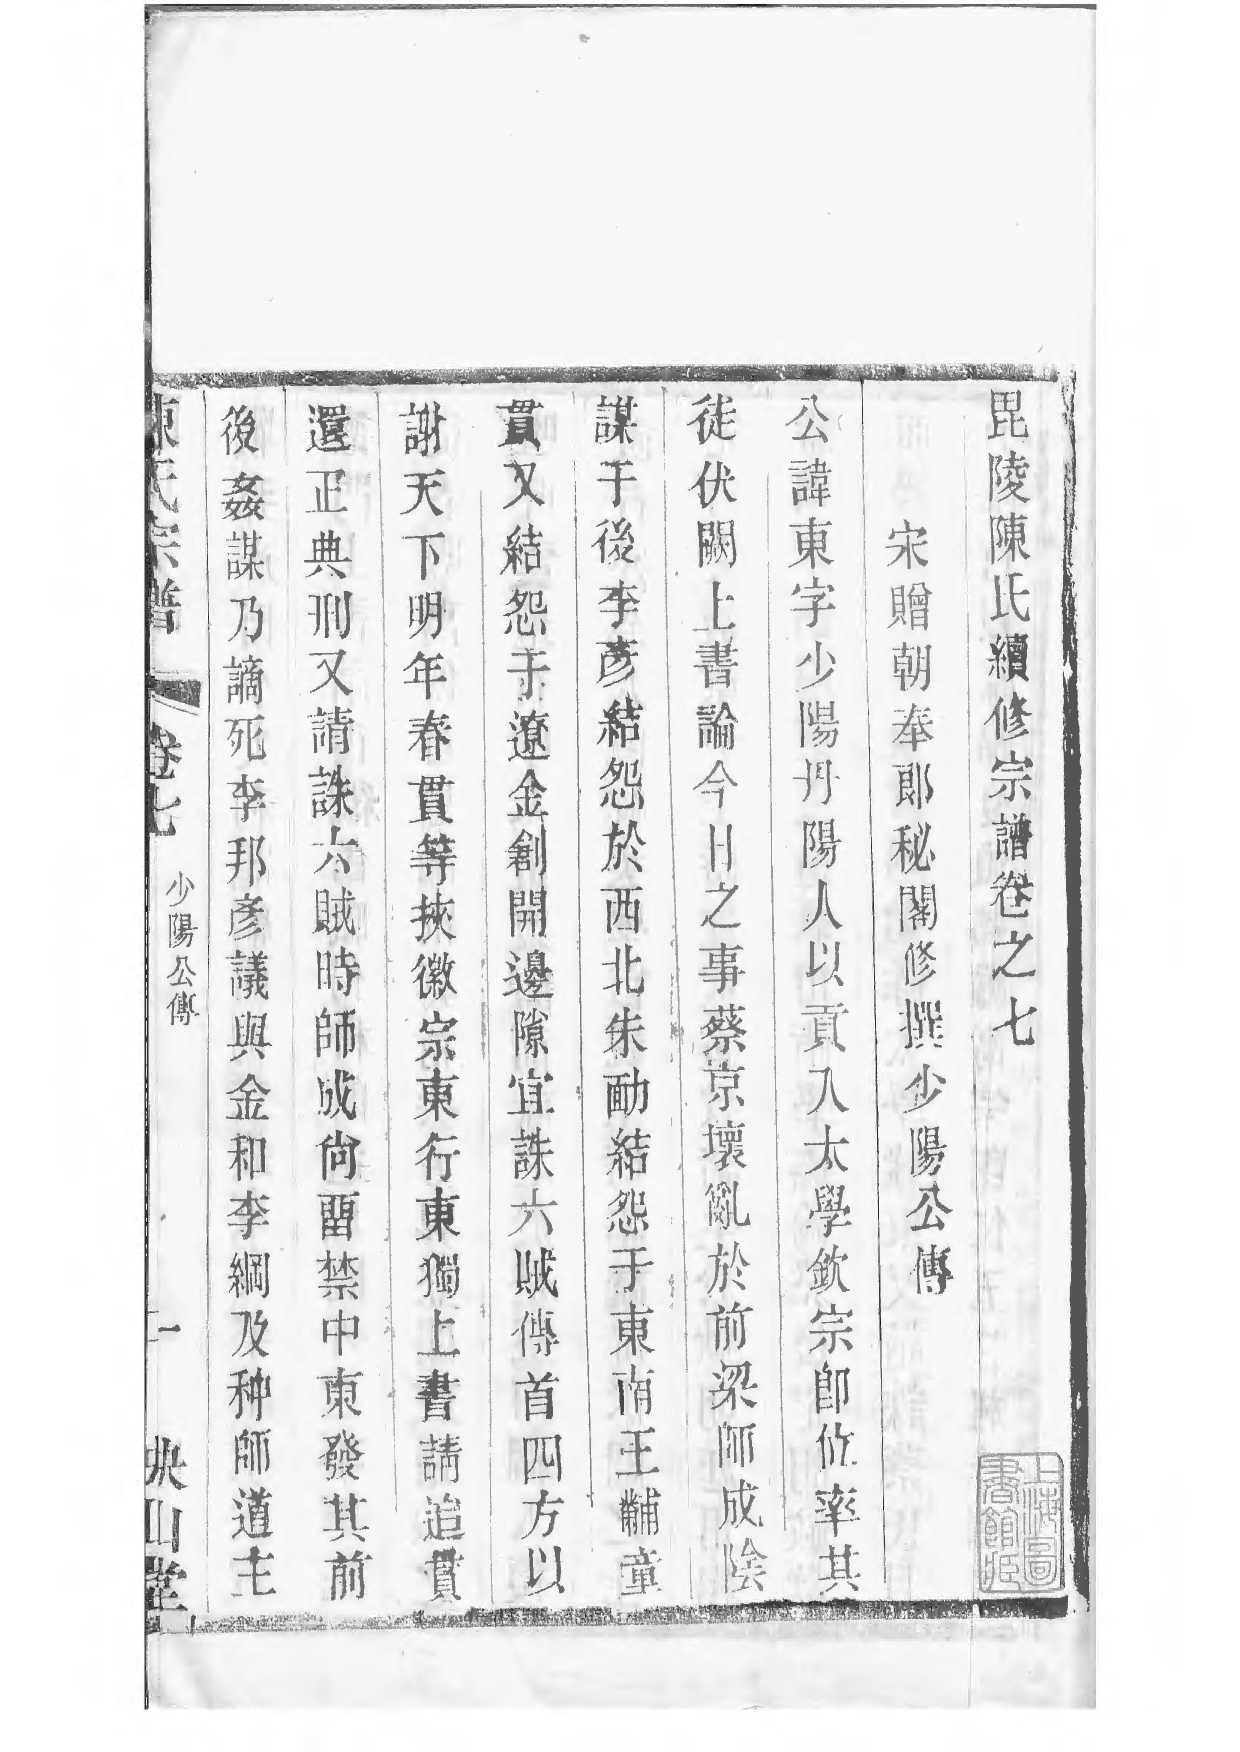 毘陵陳氏續修宗譜卷之七
宋贈朝奉郎秘閣修撰少陽公傳
公諱東字少陽丹陽人以貢入太學欽宗卽位率其
徒伏闕上書論今日之事蔡京壞亂於前梁師成陰
謀于後李彥結怨於西北朱勔結怨于東南王黼童
貫又結怨于遼金創開邊隙宜誅六賊傳首四方以
謝天下明年春貫等挾徽宗東行東獨上書請追貫
還正典刑又請誅六賊時師成尙畱禁中東發其前
後姦謀乃謫死李邦彥議與金和李綱及种師道主
陳氏宗譜
卷七
少陽公傳
一
山堂
上海圖書館藏